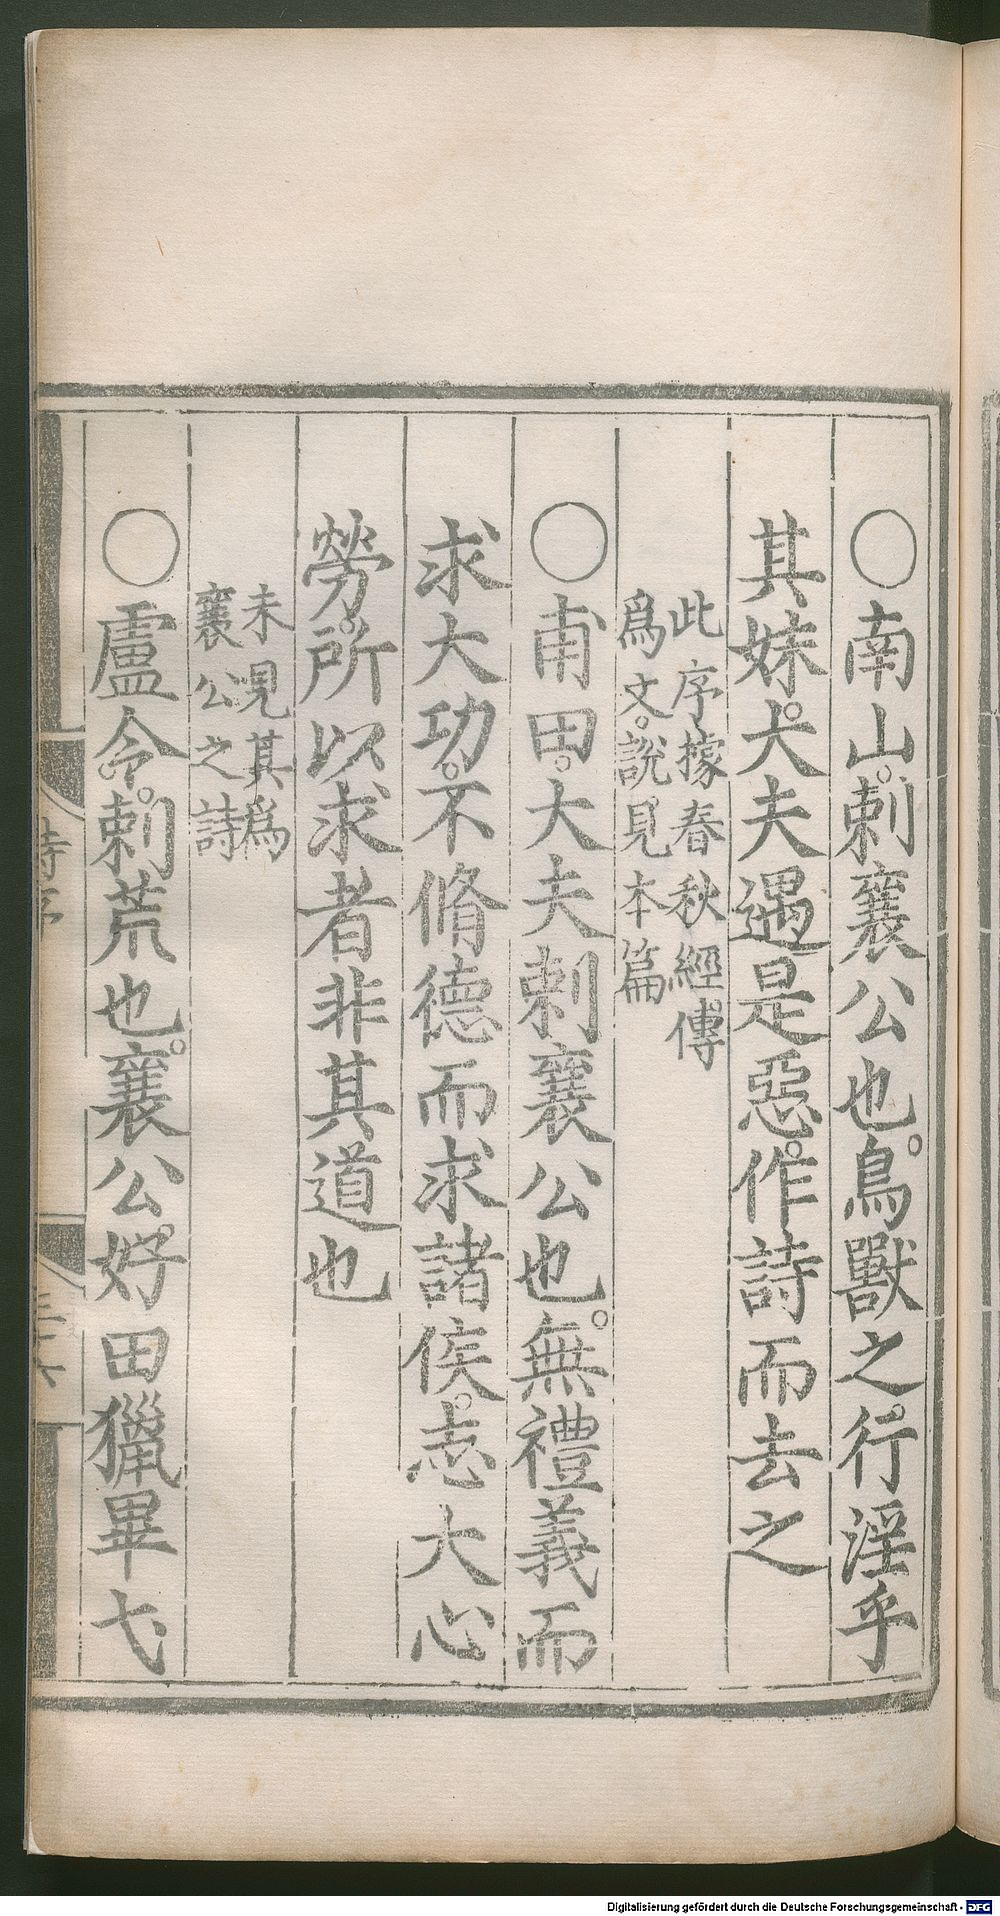 ○南山。刺襄公也。鳥獸之行。淫乎
其妹。大夫遇是惡。作詩而去之
此序據春秋經傳
爲文。說見本篇
○甫田。大夫刺襄公也。無禮義而
求大功。不脩德而求諸侯。志大心
勞。所以求者非其道也
未見其爲
襄公之詩
○盧令。刺荒也。襄公好田獵畢弋
詩序
Digitalisierung gefördert durch die Deutsche Forschungsgemeinschaft - DFG